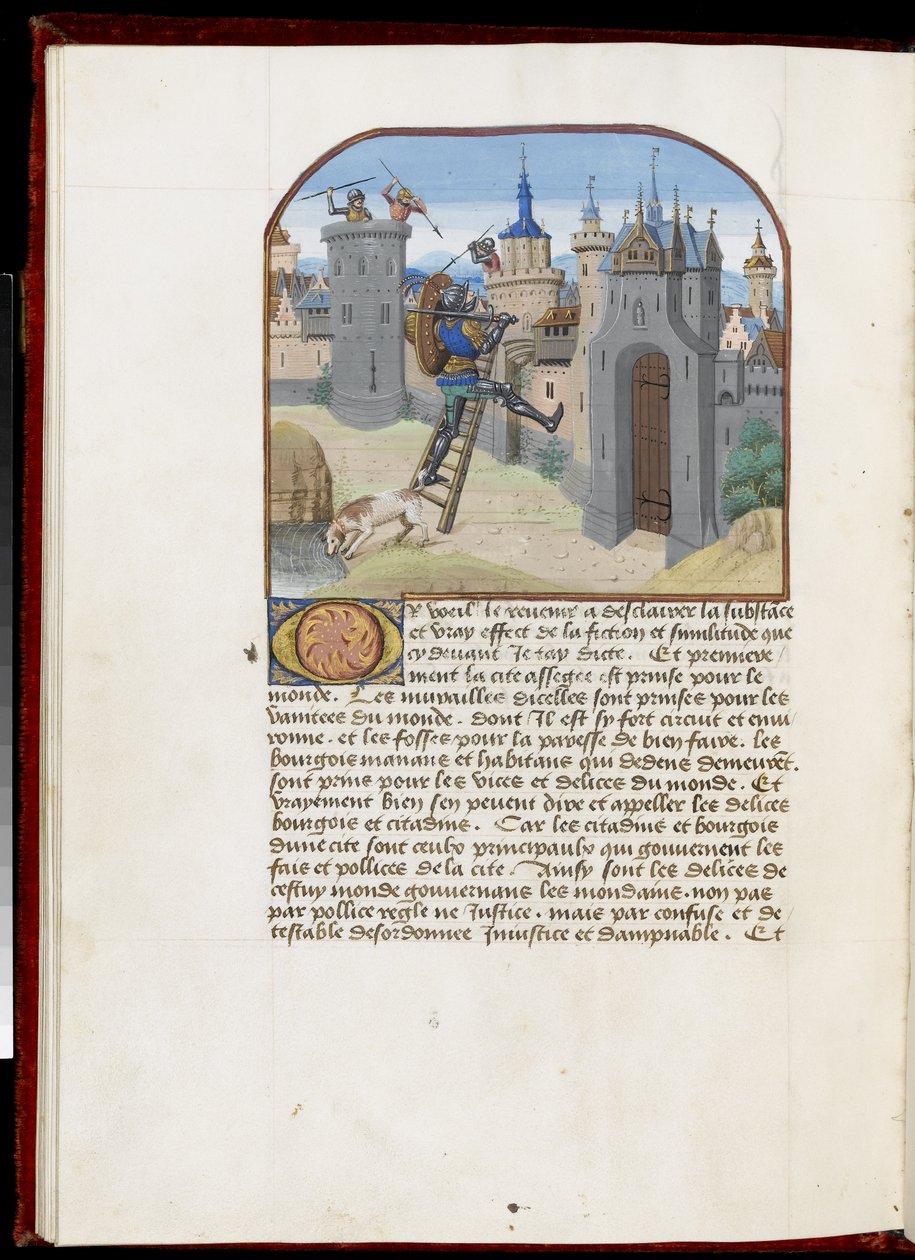 OR voeil Je revenir a desclairer la substāce
et vray effect de la fiction et similitude que
cy devant Je tay dicte. Et premiere/
ment la cite assegee est prinse pour le
monde. Les murailles dicelles sont prinses pour les
vanitees du monde. dont Il est sy fort circuit et envi
ronne. et les fosses pour la paresse de bien faire. les
bourgois manans et habitans qui dedens demeurēt.
sont prins pour les vices et delices du monde. Et
vrayement bien sen peuent dire et appeller les delices
bourgois et citadins. Car les citadins et bourgois
dune cite sont ceulx principaulx qui gouvernent les
fais et pollices de la cite. Ainsy sont les delices de
cestuy monde gouvernans les mondains. non pas
par pollice regle ne Justice. mais par confuse et de/
testable desordonnee Iniustice et dampnable. Et